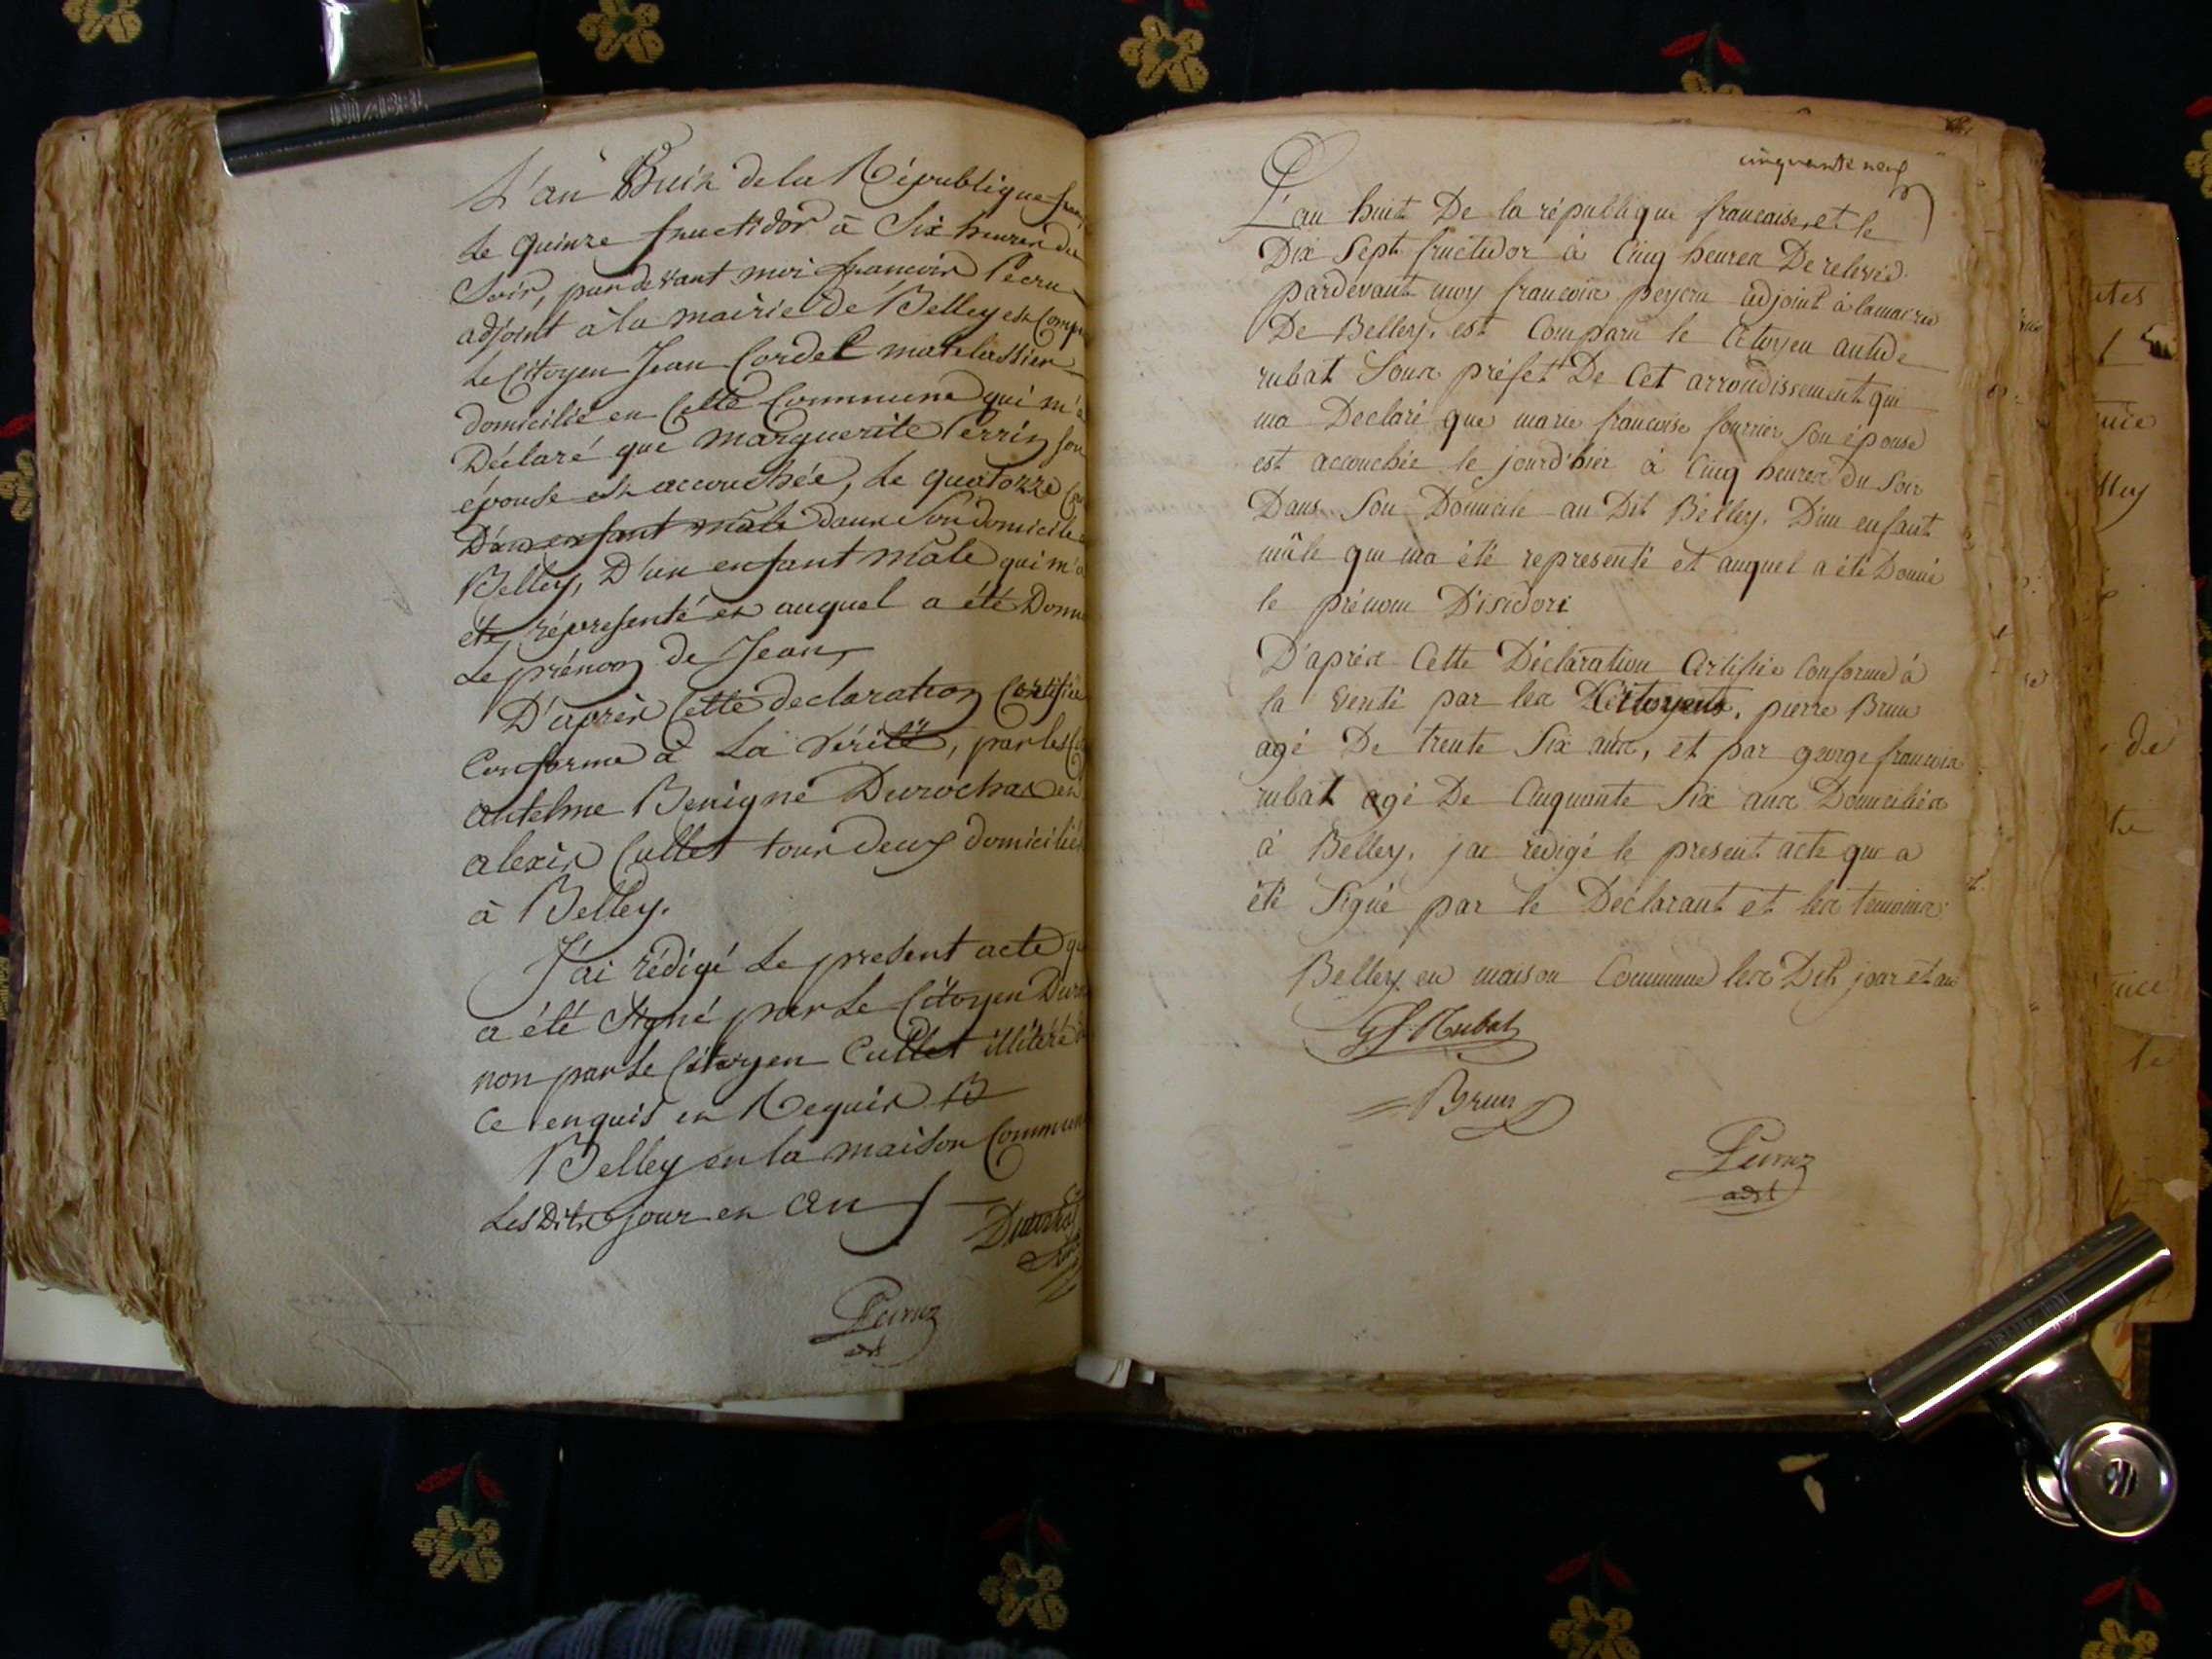 L'an Huit de la République fran
le quinze fructidor à Six heures du
Soir, pardevant moi francois Pecru
adjoint à la mairie de Belley est Compa
le Citoyen Jean Cordet matelassier
domicilié en Cette Commune qui m'a
Déclaré que marguerite Perrin son
épouse est accouchée, le quatorze
D'un enfant mâle dans Son domicile
Belley, D'un enfant mâle qui m'a
été, répresenté et auquel a été Donn
le prénom de Jean
D'après Cette declaration Certifiée
Conforme à la Vérité, par les
antelme Benigne Durochat et
alexis Cullet tous deux domiciliés
à Belley.
J'ai rédigé le present acte qu
a été signé par le Citoyen Duro
non par le Citoyen Cullet illitéré
Ce enquis et Requis
Belley en la maison Commun
les Dits jour et an
Peiruz
adt
cinquante neuf
L'an huit De la république francaise, et le
Dix Sept fructidor à Cinq heures De relevéé
pardevant moy francois peyru adjoint à la mairie
De Belley, est Comparu le Citoyen
rubat Sous préfet De Cet arrondissement qui
ma Declaré que marie francoise fournier Son épouse
est accouchée le jourd'hier à Cinq heures du Soir
Dans Son Domicile au Dit Belley, D'un enfant
mâle qui ma été representé et auquel a été Donné
le prénom D'isidore
D'après Cette Déclaration Certifiée Conforme à
la verité par les Citoyens, pierre Brun
agé De trente Six ans, et par george francois
rubat agé De Cinquante Six ans Domiciliés
à Belley, jai redigé le present acte qui a
été Signé par le Déclarant et les temoins
Belley en maison Commune les Dits jour et an
Gf. Rubat
Brun
Peiruz
adjt